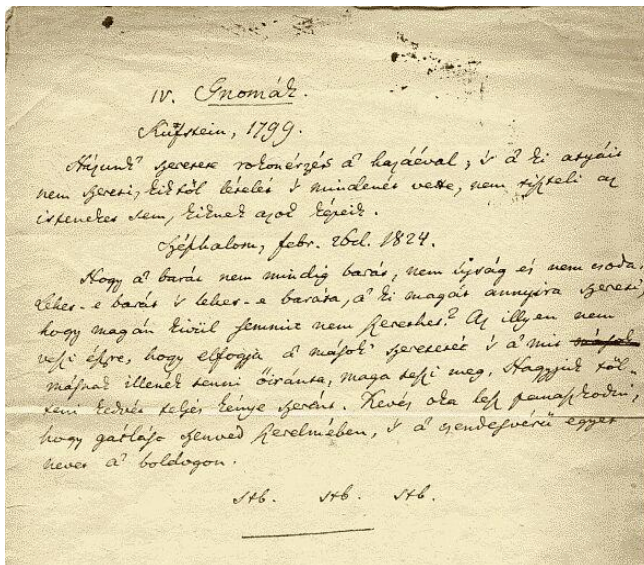 IV. Gnomák.
Kufstein, 1799.
Házunk' szeretete rokonérzés a' hazáéval; 's a' ki atyáit
nem szereti, kiktől lételét 's mindenét vette, nem tiszteli az
isteneket sem, kiknek azok képeik.
Széphalom, febr. 26d. 1824.
Hogy a' barát nem mindig barát, nem újság és nem csoda.
Lehet-e barát 's lehet-e barátja, a' ki magát annyira szereti
hogy magán kivül semmit nem szerethet? Az illyen nem
veszi észre, hogy elfogja a' mások' szeretetét 's a' mit
másnak illenék tenni őiránta, maga teszi meg. Hagyjuk töl-
teni kedvét teljes kénye szerént. Kevés oka lesz panaszkodni,
hogy gátlást szenved szerelmében, 's a' csendesvérű egyet
nevet a' boldogon.
stb. stb. stb.